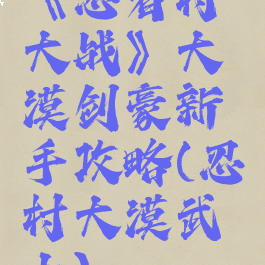 《忍者村
大战》大
漠剑豪新
手攻略(忍
村大漠武